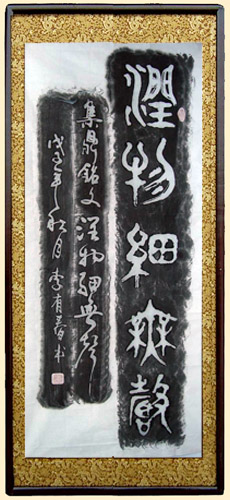 潤物細無聲
集鼎銘文潤物細無聲
戊子年秋月李有春书